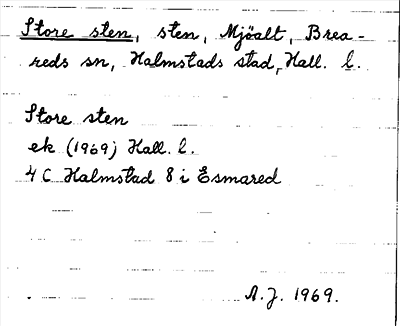 Store sten, sten, Mjöalt, Brea-
reds sn, Halmstads stad, Hall. l.
Store sten
ek (1969) Hall. l.
4 C Halmstad 8 i Esmared
A.J. 1969.